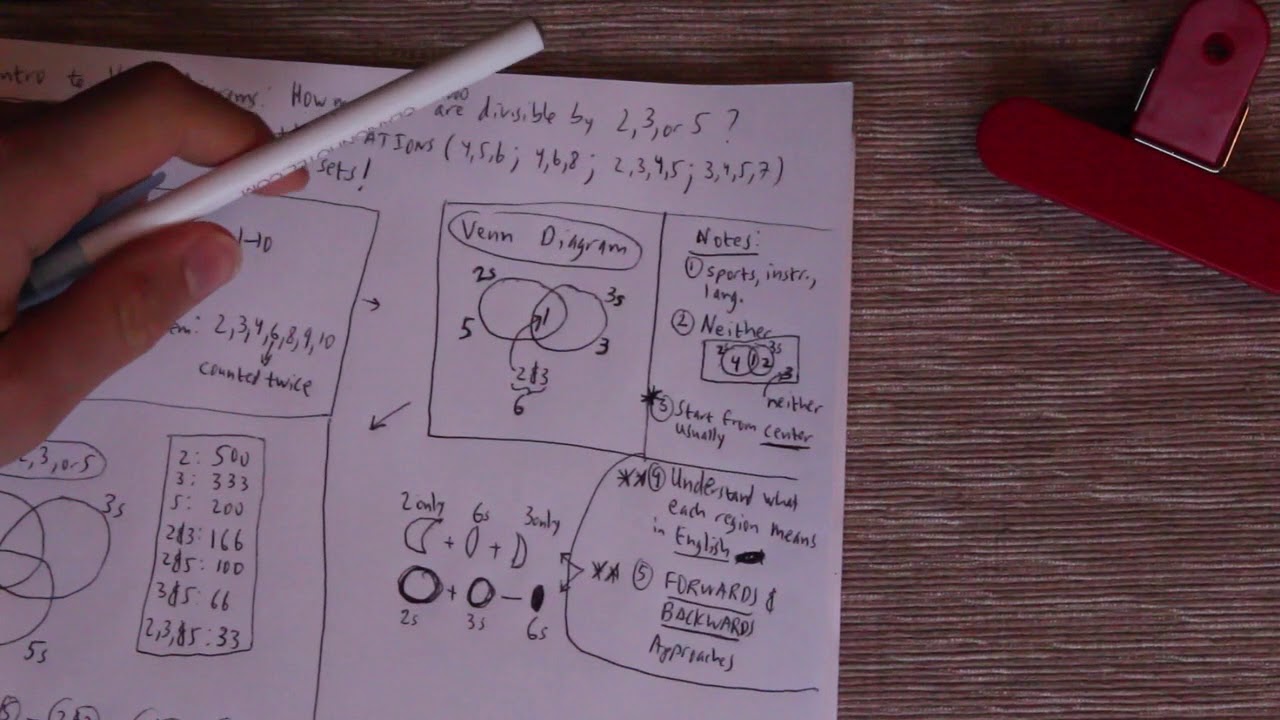 ntro to
How
are divisible by 2,3, or 5?
ATIONS (4,5,6; 4,6,8; 2,3,4,5; 3,4,5,7)
sets!
1→10
2,3,4,6,8,9,10
counted twice
Venn Diagram
2s
3s
5
1
3
2&3
6
Notes:
① sports, instr.,
lang.
② Neither
2s 3s
4 1 2
3
neither
* ③ Start from center
usually
** ④ Understand what
each region means
in English
** ⑤ FORWARDS &
BACKWARDS
Approaches
2,3, or 5
3s
5s
2: 500
3: 333
5: 200
2&3: 166
2&5: 100
3&5: 66
2,3,&5: 33
2 only 6s 3 only
+ +
+ −
2s 3s 6s